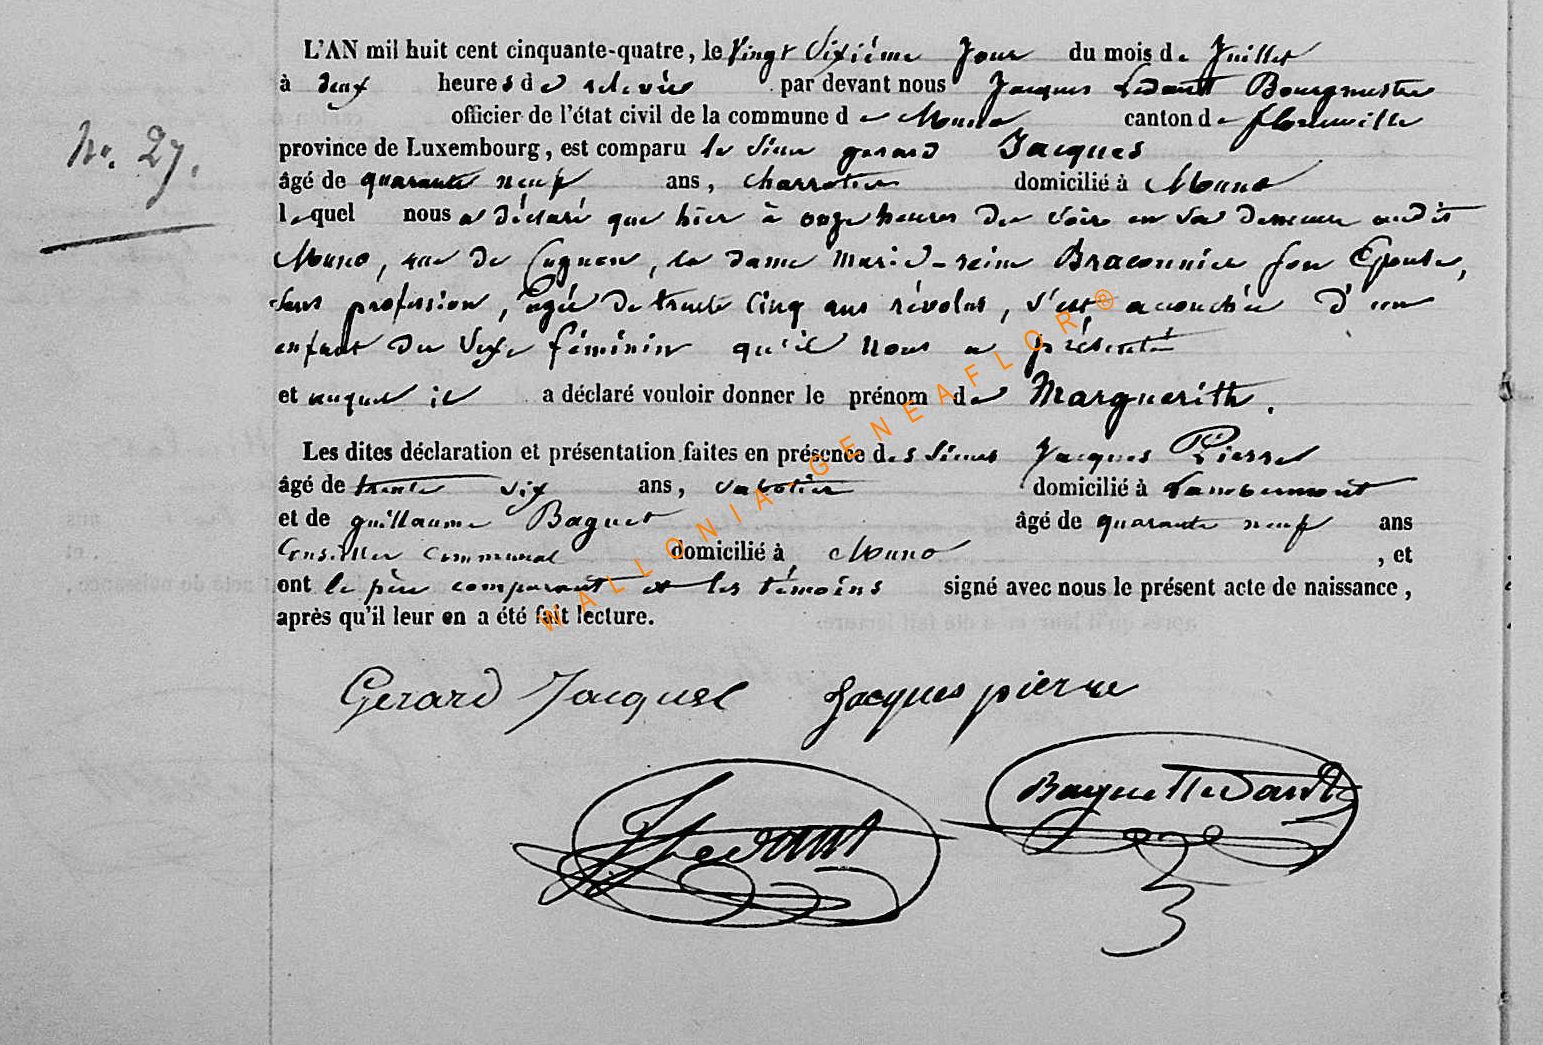 L'AN mil huit cent cinquante-quatre, le Vingt Sixième Jour du mois de Juillet
à deux heures de relevée par devant nous Jacques Ledant Bourgmestre
officier de l'état civil de la commune de Muno canton de florenville
province de Luxembourg, est comparu le Sieur gerard Jacques
No. 27.
âgé de quarante neuf ans, charretier domicilié à Muno
lequel nous a déclaré que hier à onze heures du Soir en Sa demeure audit
Muno, rue de Cugnon, la dame Marie-reine Braconnier son Epouse,
Sans profession, âgée de trente Cinq ans révolus, s'est acouchée d'un
enfant du Sexe féminin qu'il nous a présenté
et auquel il a déclaré vouloir donner le prénom de Marguerith.
Les dites déclaration et présentation faites en présence des Sieurs Jacques Pierre
âgé de trente Six ans, Sabotier domicilié à Lambermont
et de guillaume Baguet âgé de quarante neuf ans
Conseiller Communal domicilié à Muno , et
ont le père comparant et les témoins signé avec nous le présent acte de naissance,
après qu'il leur en a été fait lecture.
WALLONIA-GENEAFLOR®
Gerard Jacques Jacques pierre
JLedant